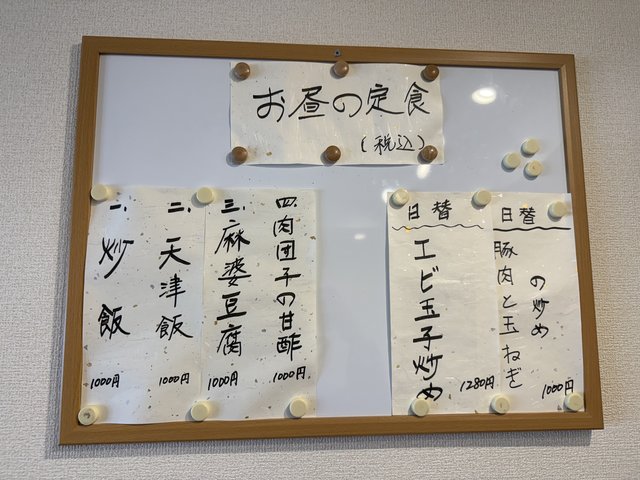 お昼の定食
(税込)
一、炒飯
1000円
二、天津飯
1000円
三、麻婆豆腐
1000円
四、肉団子の甘酢
1000円
日替
エビ玉子炒め
1280円
日替
豚肉と玉ねぎ
の炒め
1000円